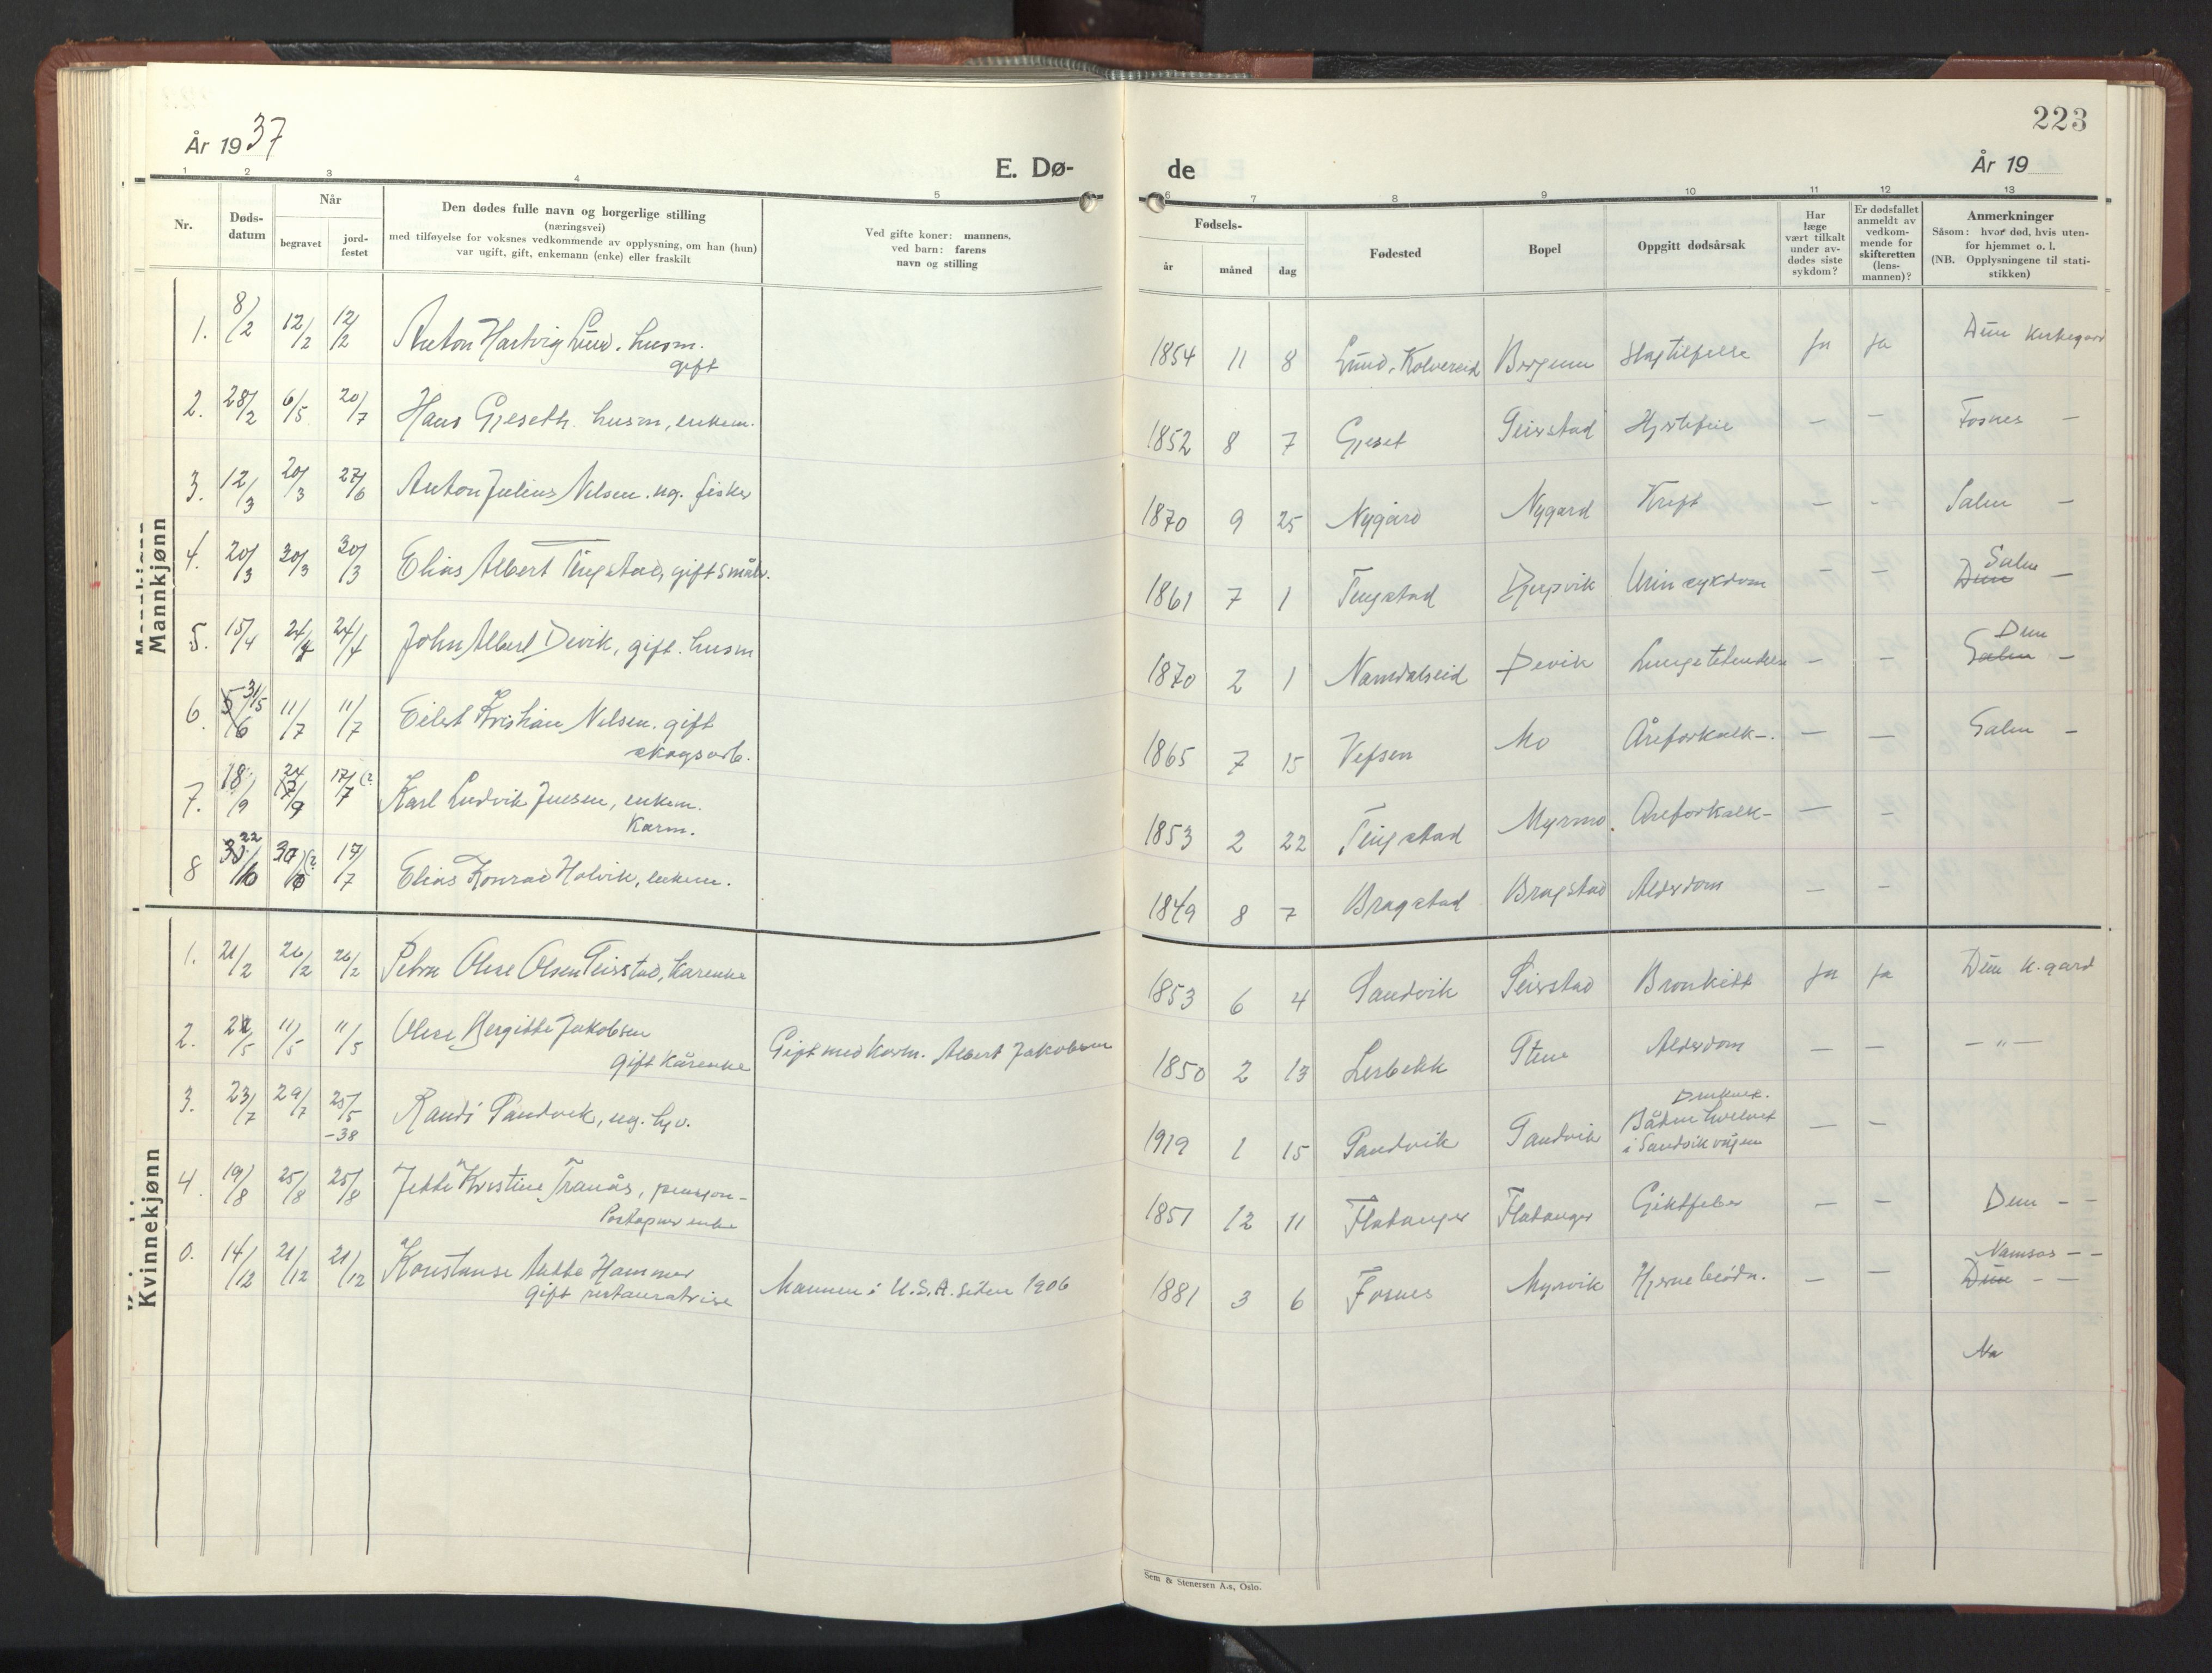 223
År 1937
E. Dø-
de
År 19
1 2 3 4 5 6 7 8 9 10 11 12 13
Nr.
Døds-
datum
Når
begravet
jord-
festet
Den dødes fulle navn og borgerlige stilling
(næringsvei)
med tilføyelse for voksnes vedkommende av opplysning, om han (hun)
var ugift, gift, enkemann (enke) eller fraskilt
Ved gifte koner: mannens,
ved barn: farens
navn og stilling
Fødsels-
år måned dag
Fødested
Bopel
Oppgitt dødsårsak
Har
læge
vært tilkalt
under av-
dødes siste
sykdom?
Er dødsfallet
anmeldt av
vedkom-
mende for
skifteretten
(lens-
mannen)?
Anmerkninger
Såsom: hvor død, hvis uten-
for hjemmet o. l.
(NB. Opplysningene til stati-
stikken)
Mannkjønn
1. 8/2 12/2 12/2 Anton Hartvig Lund. husm.
gift
1854 11 8 Lund, Kolvereid Slagtilfelle ja ja Dun kirkegard
2. 28/2 6/5 20/7 Hans Gjeseth. husm, enkem.
1852 8 7 Gjeset Seierstad Hjertefeil — — Fosnes —
3. 12/3 20/3 27/6 Anton Julius Nilsen. ug. fisker
1870 9 25 Nygård Nygard Kreft — — Salen —
4. 20/3 30/3 30/3 Elias Albert Tingstad, gift småbr.
1861 7 1 Tingstad Djupvik Urinsykdom — — Salen
Dun —
5. 15/4 24/4 24/4 John Albert Devik, gift. husm
1870 2 1 Namdalseid Devik — — Dun
Salen —
6. 5/6 31/5 11/7 11/7 Eilert Kristian Nilsen. gift
skogsarb.
1865 7 15 Vefsen Mo Åreforkalk-. — — Salen —
7. 18/9 24/9 17/7 (? Karl Ludvik Jensen, enkem.
Karm.
1853 2 22 Tingstad Myrmo. Åreforkalk- — —
8 22/6 (? 17/7 Elias Konrad Holvik, enkem.
1849 8 7 Bragstad Bragstad Alderdom — —
Kvinnekjønn
1. 21/2 26/2 26/2 Petra Olise Olsen Seierstad, karenke
1853 6 4 Sandvik Seierstad Bronkitt ja ja Dun k.gard
2. 2/5 11/5 11/5 Olise Bergitte Jakobsen
gift kårenke
Gift med karm. Albert Jakobsen
1850 2 13 Lerbekk Stene Alderdom — — — " —
3. 23/7 29/7 25/5
-38
Randi Sandvik, ug. hj.v.
1919 1 15 Sandvik Sandvik Druknet.
Båten hvelvet
i Sandvikvågen — —
4. 19/8 25/8 25/8 Jette Kristine Tranås, pensjon-
Poståpner enke
1851 12 11 Flatanger Flatanger Giktfeber — — Dun — —
0. 14/12 21/12 21/12 Konstanse Hammer
gift restauratrise
Mannen i U.S.A. siden 1906
1881 3 6 Fosnes Myrvik Hjerneblødn. — — Namsos — —
Dun — —
Na
Sem & Stenersen A.s, Oslo.